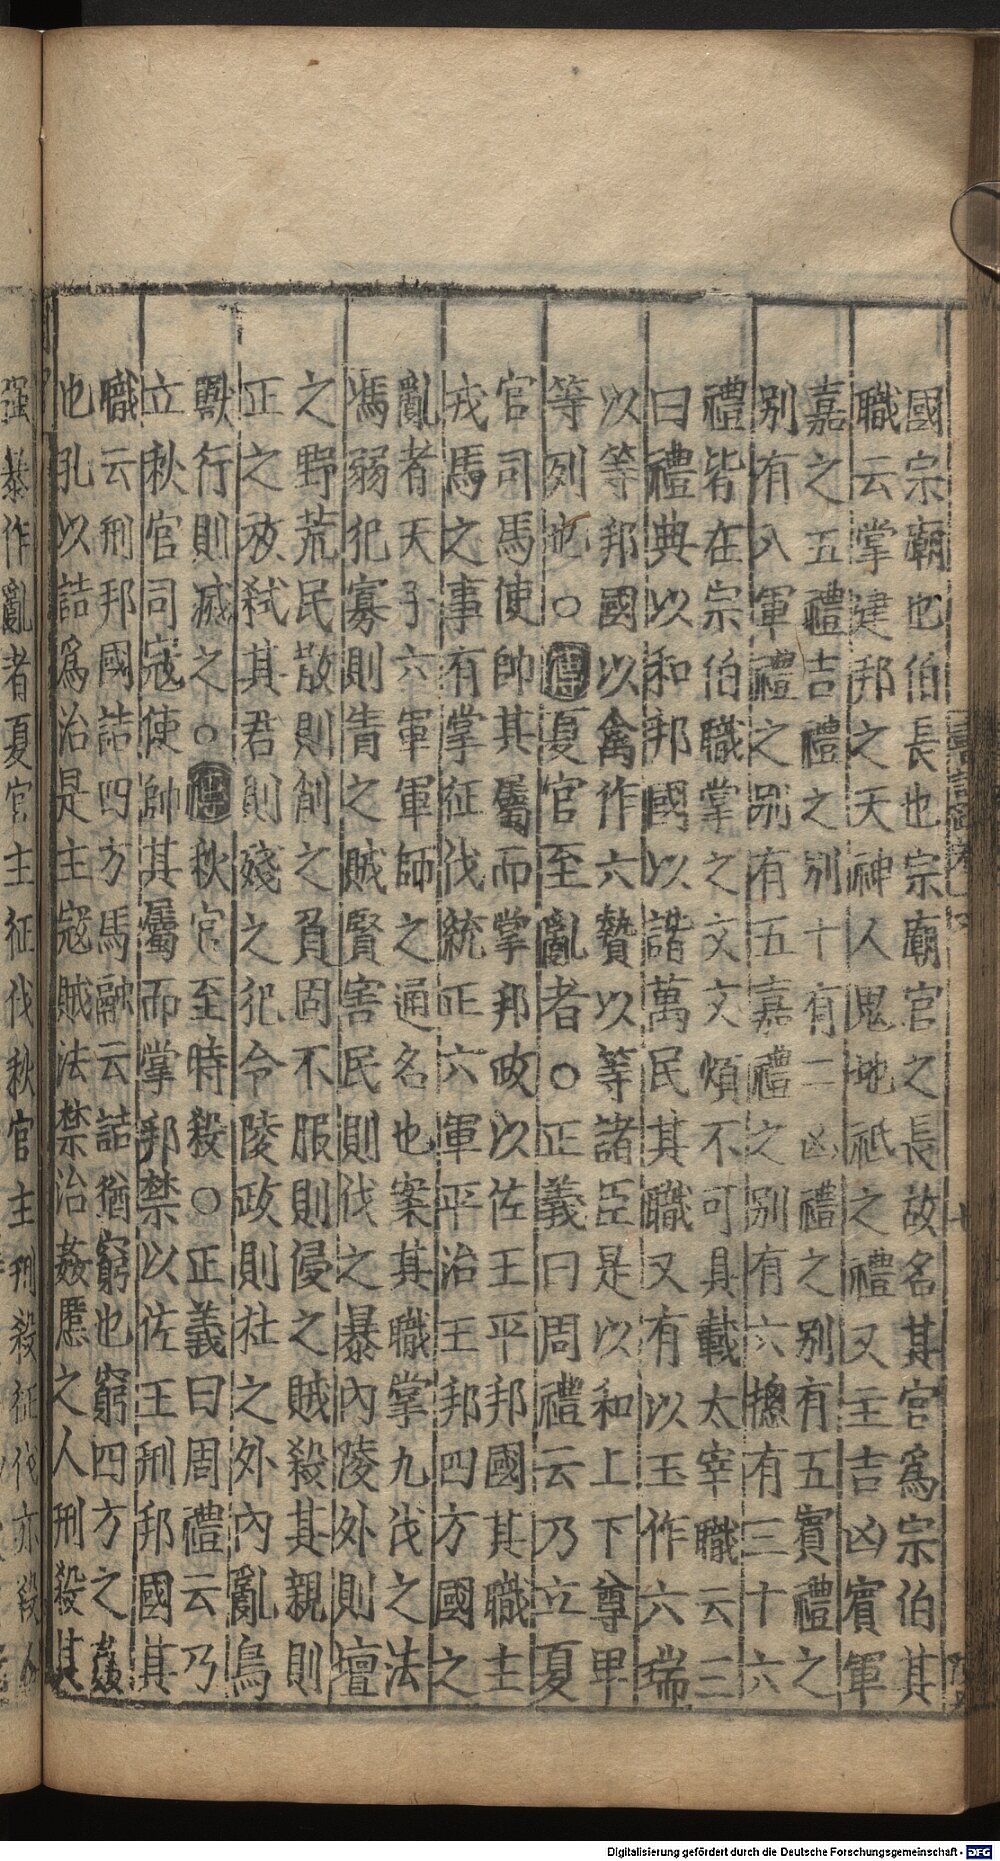 國宗廟也伯長也宗廟官之長故名其官爲宗伯其
職云掌建邦之天神人鬼地祇之禮又主吉凶賓軍
嘉之五禮吉禮之别十有二凶禮之别有五賓禮之
别有八軍禮之别有五嘉禮之别有六揔有三十六
禮皆在宗伯職掌之文文煩不可具載太宰職云三
曰禮典以和邦國以諧萬民其職又有以玉作六瑞
以等邦國以禽作六贄以等諸臣是以和上下尊卑
等列也○傳夏官至亂者○正義曰周禮云乃立夏
官司馬使帥其屬而掌邦政以佐王平邦國其職主
戎馬之事有掌征伐統正六軍平治王邦四方國之
亂者天子六軍軍師之通名也案其職掌九伐之法
馮弱犯寡則眚之賊賢害民則伐之暴內陵外則壇
之野荒民散則削之負固不服則侵之賊殺其親則
正之放弒其君則殘之犯令陵政則杜之外內亂鳥
獸行則滅之○傳秋官至時殺○正義曰周禮云乃
立秋官司寇使帥其屬而掌邦禁以佐王刑邦國其
職云刑邦國詰四方馬融云詰猶窮也窮四方之姦
也孔以詰爲治是主寇賊法禁治姦慝之人刑殺其
強暴作亂者夏官主征伐秋官主刑殺征伐亦殺人
Digitalisierung gefördert durch die Deutsche Forschungsgemeinschaft - DFG